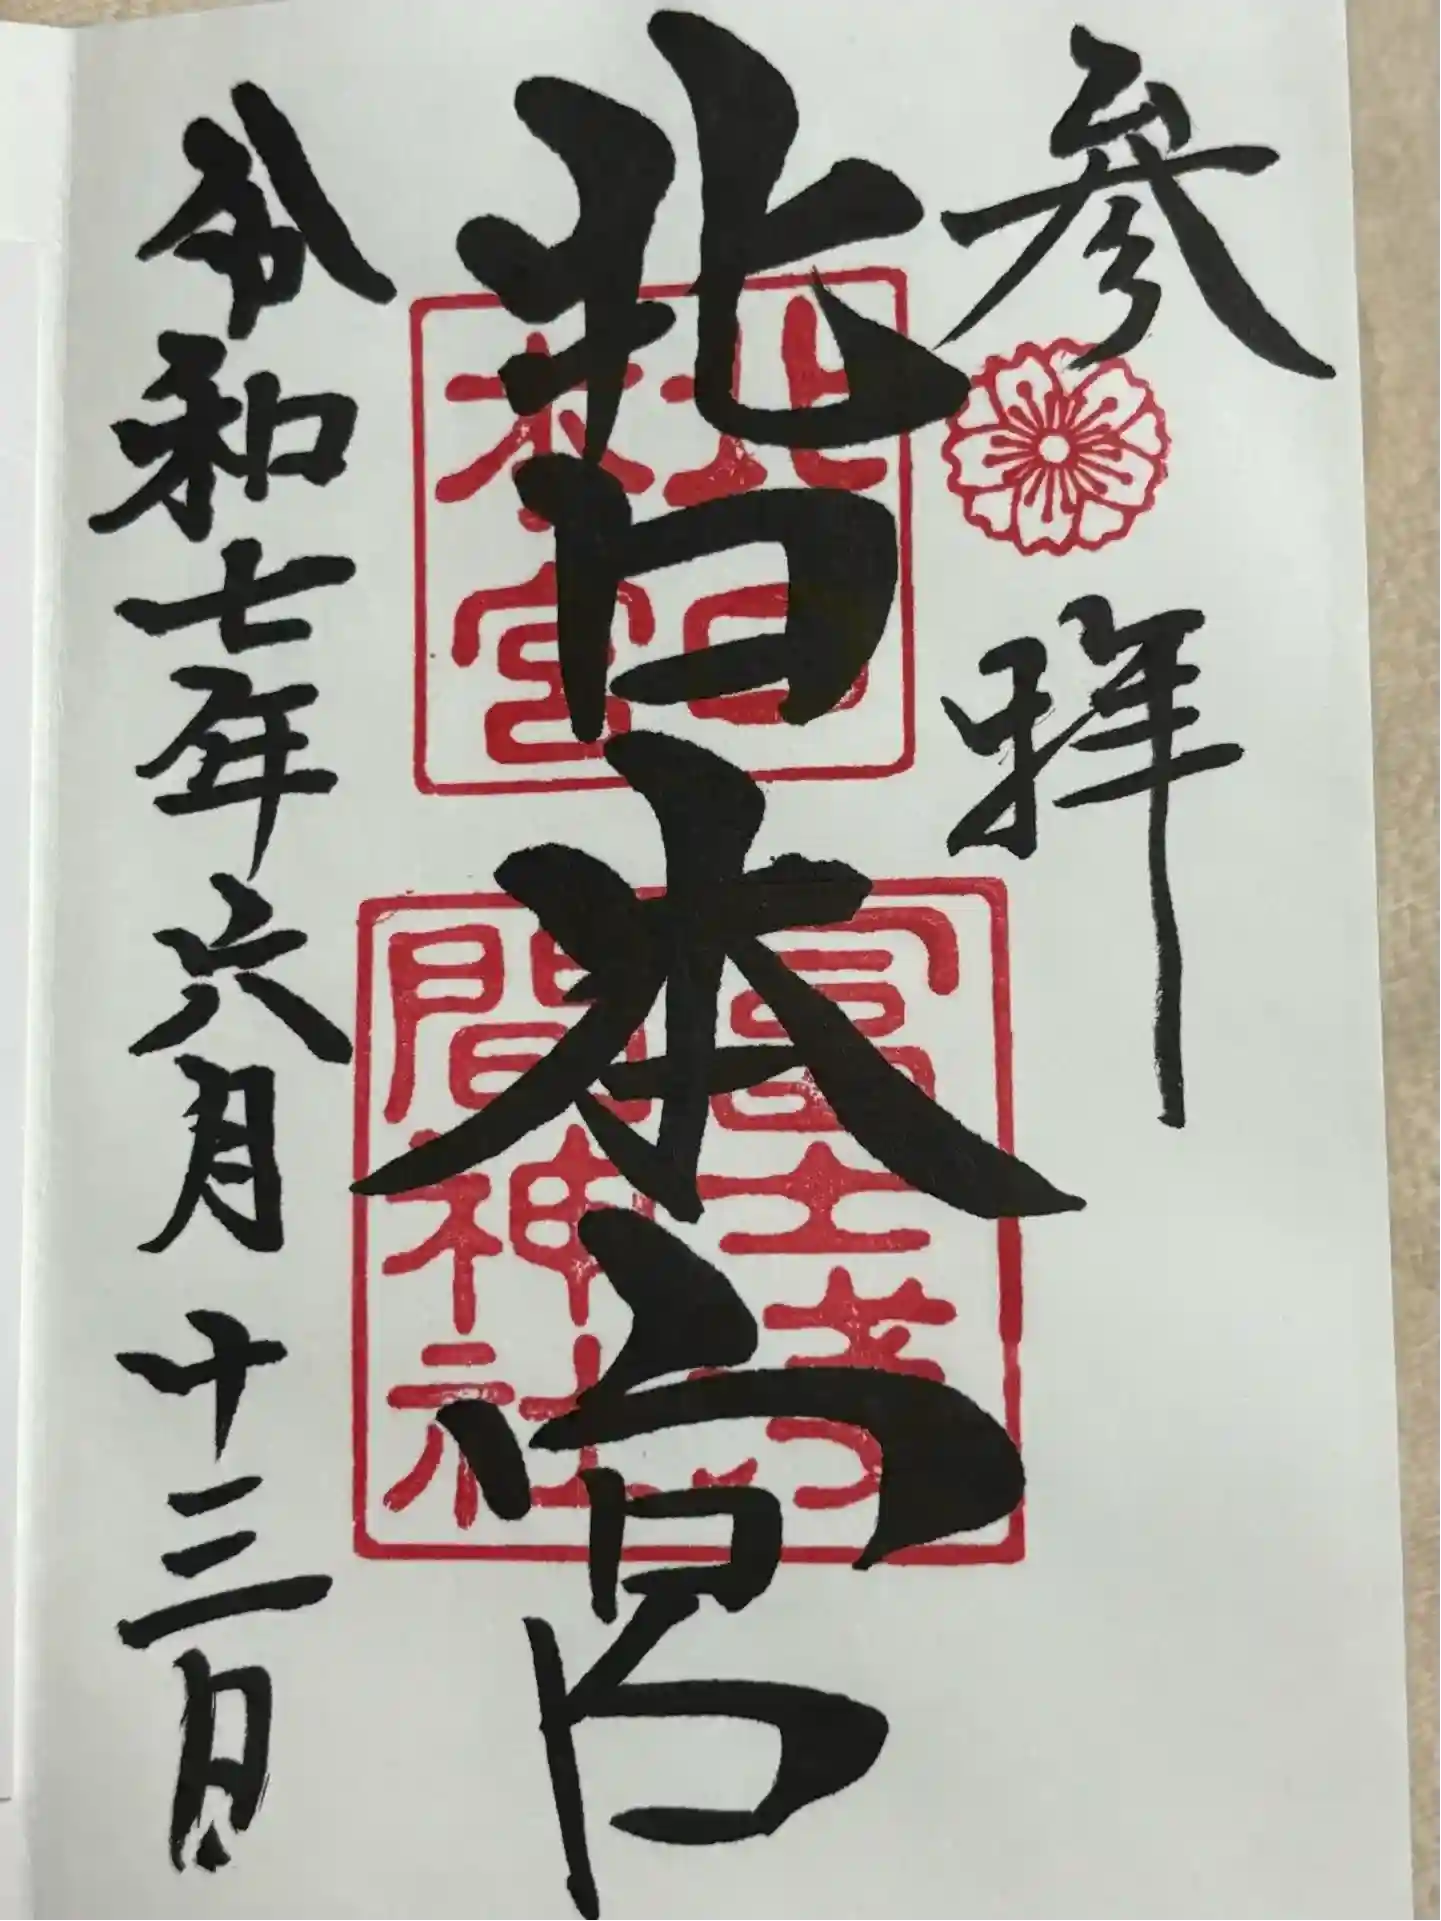 参拝
北口本宮
令和七年六月十三日
北口
本宮
冨士
間神社